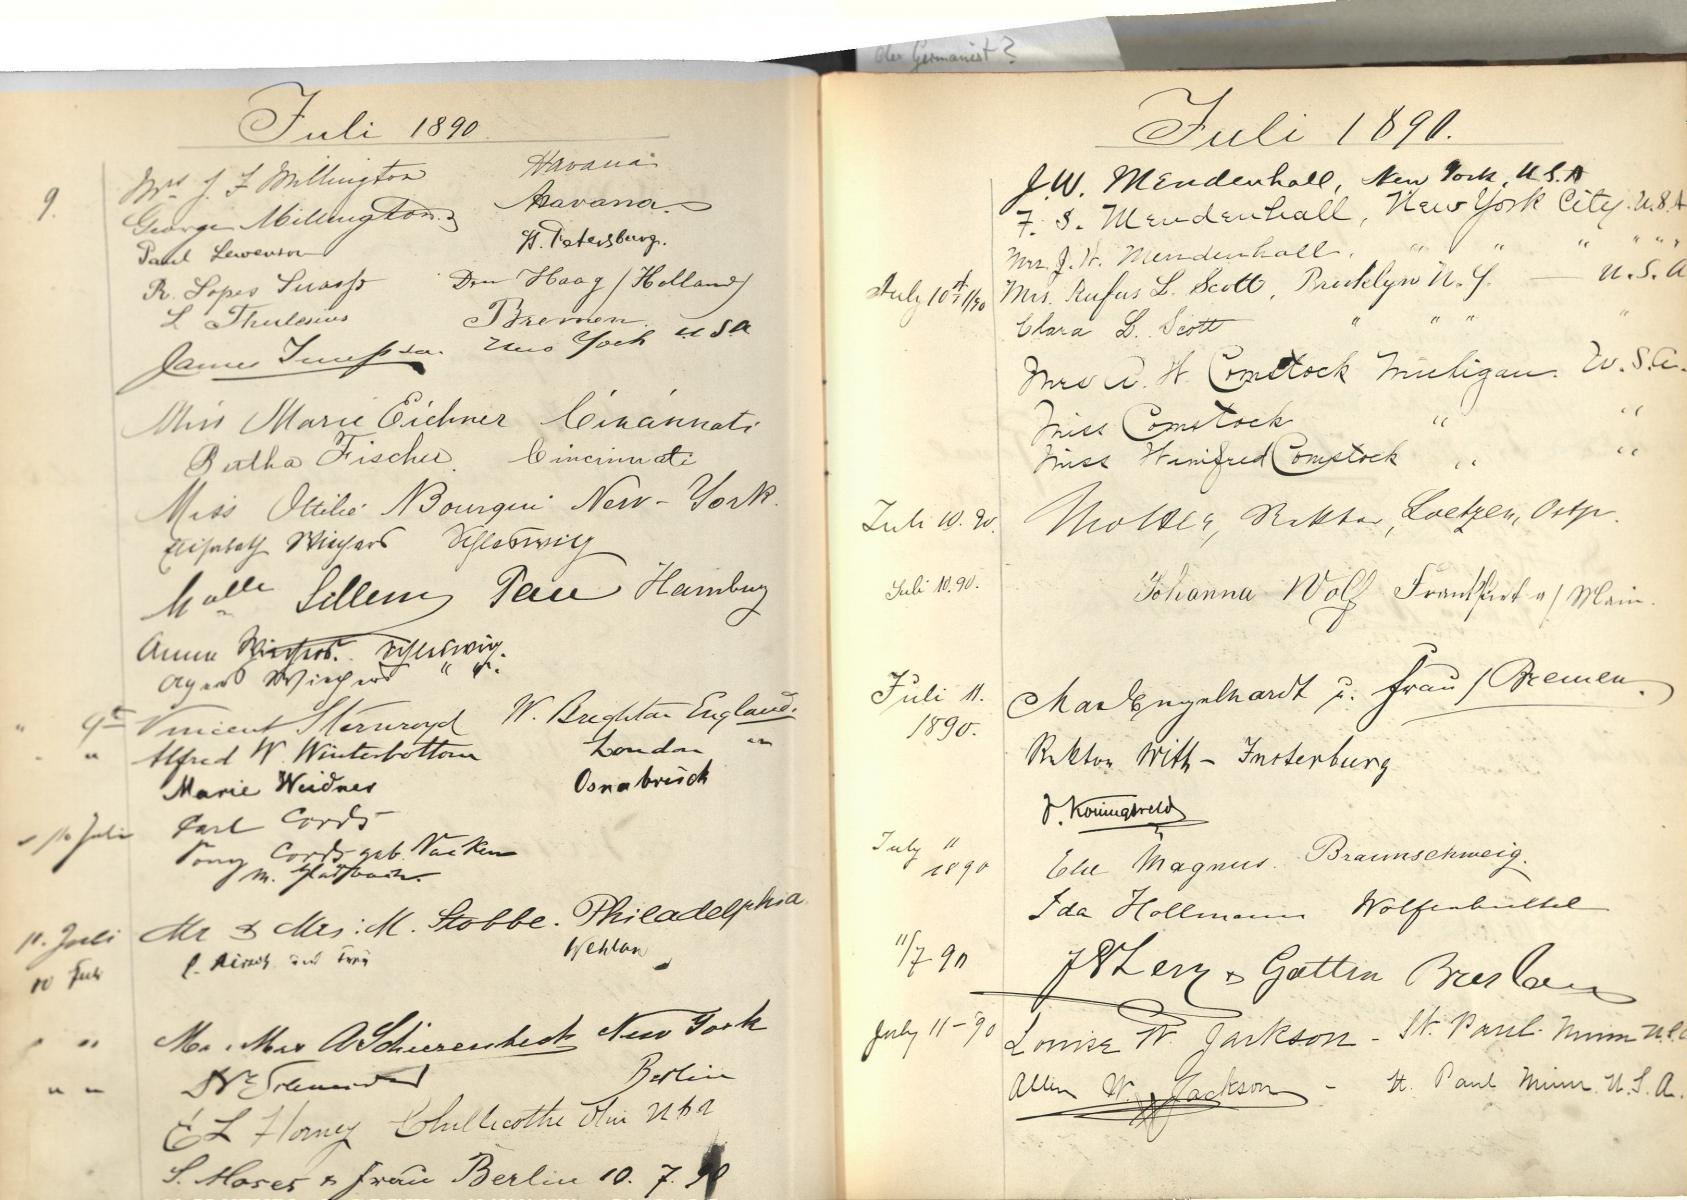 der Germanist?
Juli 1890
Mrs J. F. Millington Havana
9. George Millington Havana
Paul Lewenson St. Petersburg.
R. Lopes Suasso Den Haag (Holland)
L Thulesius Bremen
James Simpson New York U S A
Miss Marie Eichner Cincinnati
Bertha Fischer. Cincinnati
Miss Ottilie Bourquin New-York.
Elisabeth Schleswig
Malle Sillem Hamburg
Anna Schleswig.
Agnes " "
" 9th Vincent W. Brighton England.
" Alfred W. Winterbottom London "
Marie Weidner Osnabrück
10 Juli Carl Cords
Tony Cords geb. Nacken
M. Gladbach.
10. Juli Mr & Mrs: M. Stobbe. Philadelphia
10 Juli und Frau Wehlau
" Mr. Mrs A Schierenbeck New York
" " Dr Berlin
E L Horney Chillicothe Ohio U S A
S. Moses & Frau Berlin 10. 7. 90
Juli 1890.
J. W. Mendenhall, New York, U.S.A
F. S. Mendenhall, New York City. U.S.A
Mrs J. W. Mendenhall. " " " " " "
July 10th 1890 Mrs. Rufus L. Scott, Brooklyn N. Y. — U.S.A
Clara L. Scott " " " "
Mrs A. H. Comstock Michigan. U.S.A.
Miss Comstock " "
Miss Winifred Comstock " "
Juli 10. 90. Rektor, Loetzen, Ostpr.
Juli 10. 90. Johanna Wolf Frankfurt a/Main.
Juli 11. 1890. Max Engelhardt u. Frau / Bremen.
Rektor Witt - Insterburg
Koningsveld
July " 1890 Else Magnus. Braunschweig.
Ida Hollmann Wolfenbüttel
11/7 90 & Gattin Breslau
July 11-90 Louise W. Jackson - St. Paul Minn U.S.A
Allen W. Jackson - St. Paul Minn. U.S.A.